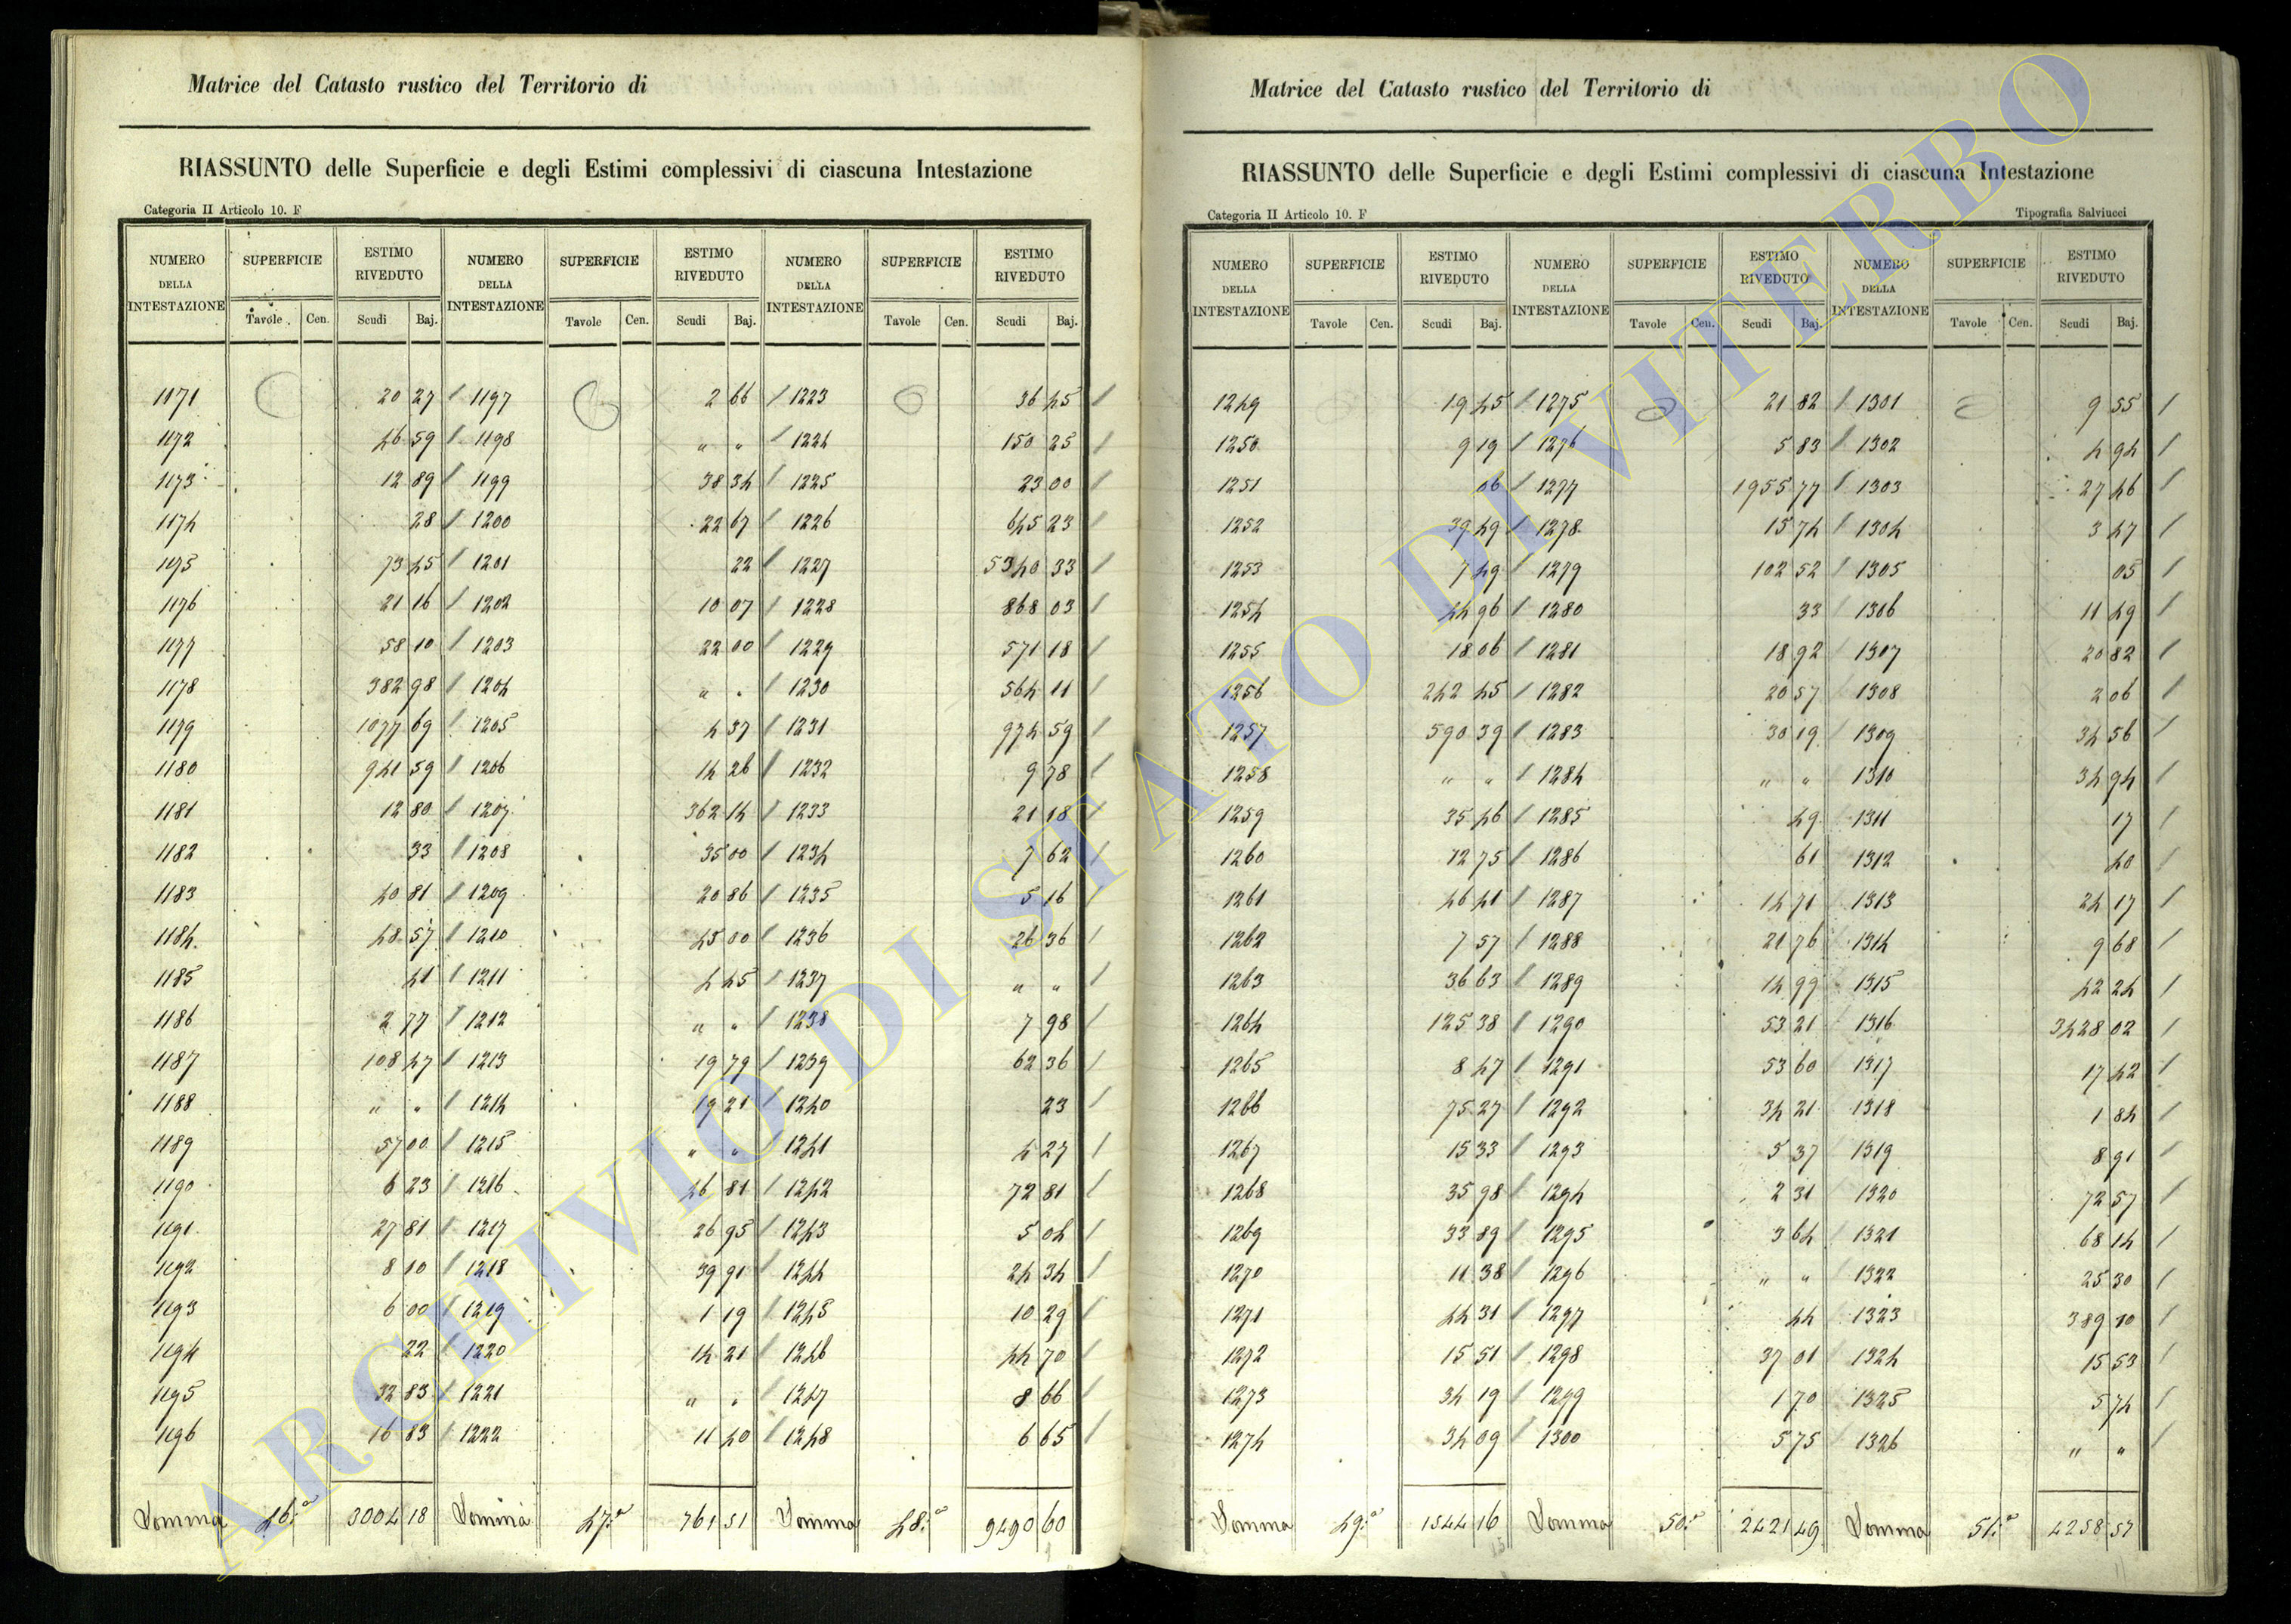 Matrice del Catasto rustico del Territorio di
RIASSUNTO delle Superficie e degli Estimi complessivi di ciascuna Intestazione
Categoria II Articolo 10. F
NUMERO DELLA INTESTAZIONE SUPERFICIE ESTIMO RIVEDUTO NUMERO DELLA INTESTAZIONE SUPERFICIE ESTIMO RIVEDUTO NUMERO DELLA INTESTAZIONE SUPERFICIE ESTIMO RIVEDUTO
Tavole Cen. Scudi Baj. Tavole Cen. Scudi Baj. Tavole Cen. Scudi Baj.
1071 20 27 1197 2 66 1223 36 45
1172 46 59 1198 " " 1224 150 25
1173 12 89 1199 38 34 1225 23 00
1174 28 1200 22 67 1226 645 23
1175 73 45 1201 22 1227 5340 33
1176 21 16 1202 10 07 1228 868 03
1177 58 10 1203 22 00 1229 571 18
1178 382 98 1204 " " 1230 564 11
1179 1077 69 1205 4 37 1231 974 59
1180 941 59 1206 14 26 1232 9 78
1181 12 80 1207 362 14 1233 21 18
1182 33 1208 35 00 1234 7 62
1183 40 81 1209 20 86 1235 5 16
1184 48 57 1210 45 00 1236 26 36
1185 41 1211 4 45 1237 " "
1186 2 77 1212 " " 1238 7 98
1187 108 47 1213 19 79 1239 62 36
1188 " " 1214 19 21 1240 23
1189 57 00 1215 " " 1241 4 27
1190 6 23 1216 46 81 1242 72 81
1191 27 81 1217 26 95 1243 5 04
1192 8 10 1218 39 91 1244 24 34
1193 6 00 1219 1 19 1245 10 29
1194 22 1220 14 21 1246 44 70
1195 32 83 1221 " " 1247 8 66
1196 16 83 1222 11 40 1248 6 65
Somma 46.a 3004 18 Somma 47.a 761 51 Somma 48.a 9490 60
Matrice del Catasto rustico del Territorio di
RIASSUNTO delle Superficie e degli Estimi complessivi di ciascuna Intestazione
Categoria II Articolo 10. F Tipografia Salviucci
NUMERO DELLA INTESTAZIONE SUPERFICIE ESTIMO RIVEDUTO NUMERO DELLA INTESTAZIONE SUPERFICIE ESTIMO RIVEDUTO NUMERO DELLA INTESTAZIONE SUPERFICIE ESTIMO RIVEDUTO
Tavole Cen. Scudi Baj. Tavole Cen. Scudi Baj. Tavole Cen. Scudi Baj.
1249 19 45 1275 21 82 1301 9 55
1250 9 19 1276 5 83 1302 4 94
1251 06 1277 1955 77 1303 27 46
1252 39 49 1278 15 74 1304 3 47
1253 7 49 1279 102 52 1305 05
1254 44 96 1280 33 1306 11 49
1255 18 06 1281 18 92 1307 20 82
1256 242 45 1282 20 57 1308 2 06
1257 590 39 1283 30 19 1309 34 56
1258 " " 1284 " " 1310 34 94
1259 35 46 1285 49 1311 17
1260 12 75 1286 61 1312 40
1261 46 41 1287 14 71 1313 24 17
1262 7 57 1288 21 76 1314 9 68
1263 36 63 1289 14 99 1315 42 24
1264 125 38 1290 53 21 1316 3428 02
1265 8 47 1291 53 60 1317 17 42
1266 75 27 1292 34 21 1318 1 84
1267 15 33 1293 5 37 1319 8 91
1268 35 98 1294 2 31 1320 72 57
1269 33 89 1295 3 64 1321 68 14
1270 11 38 1296 " " 1322 25 30
1271 44 31 1297 44 1323 389 10
1272 15 51 1298 37 01 1324 15 53
1273 34 19 1299 1 70 1325 5 74
1274 34 09 1300 5 75 1326 " "
Somma 49.a 1544 16 Somma 50.a 2421 49 Somma 51.a 4258 57
ARCHIVIO DI STATO DI VITERBO